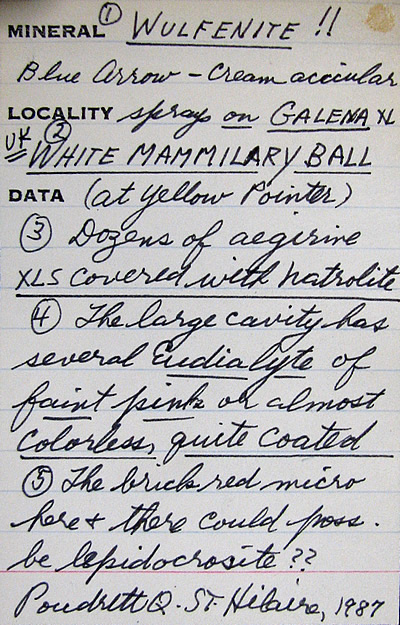 MINERAL ① WULFENITE !!
Blue Arrow - Cream acicular
LOCALITY sprays on GALENA XL
UK ② WHITE MAMMILARY BALL
DATA (at Yellow Pointer)
③ Dozens of aegirine
XLS covered with natrolite
④ The large cavity has
several Eudialyte of
faint pink or almost
colorless, quite coated
⑤ The brick red micro
here + there could poss.
be lepidocrosite ??
Poudrett Q. St. Hilaire, 1987